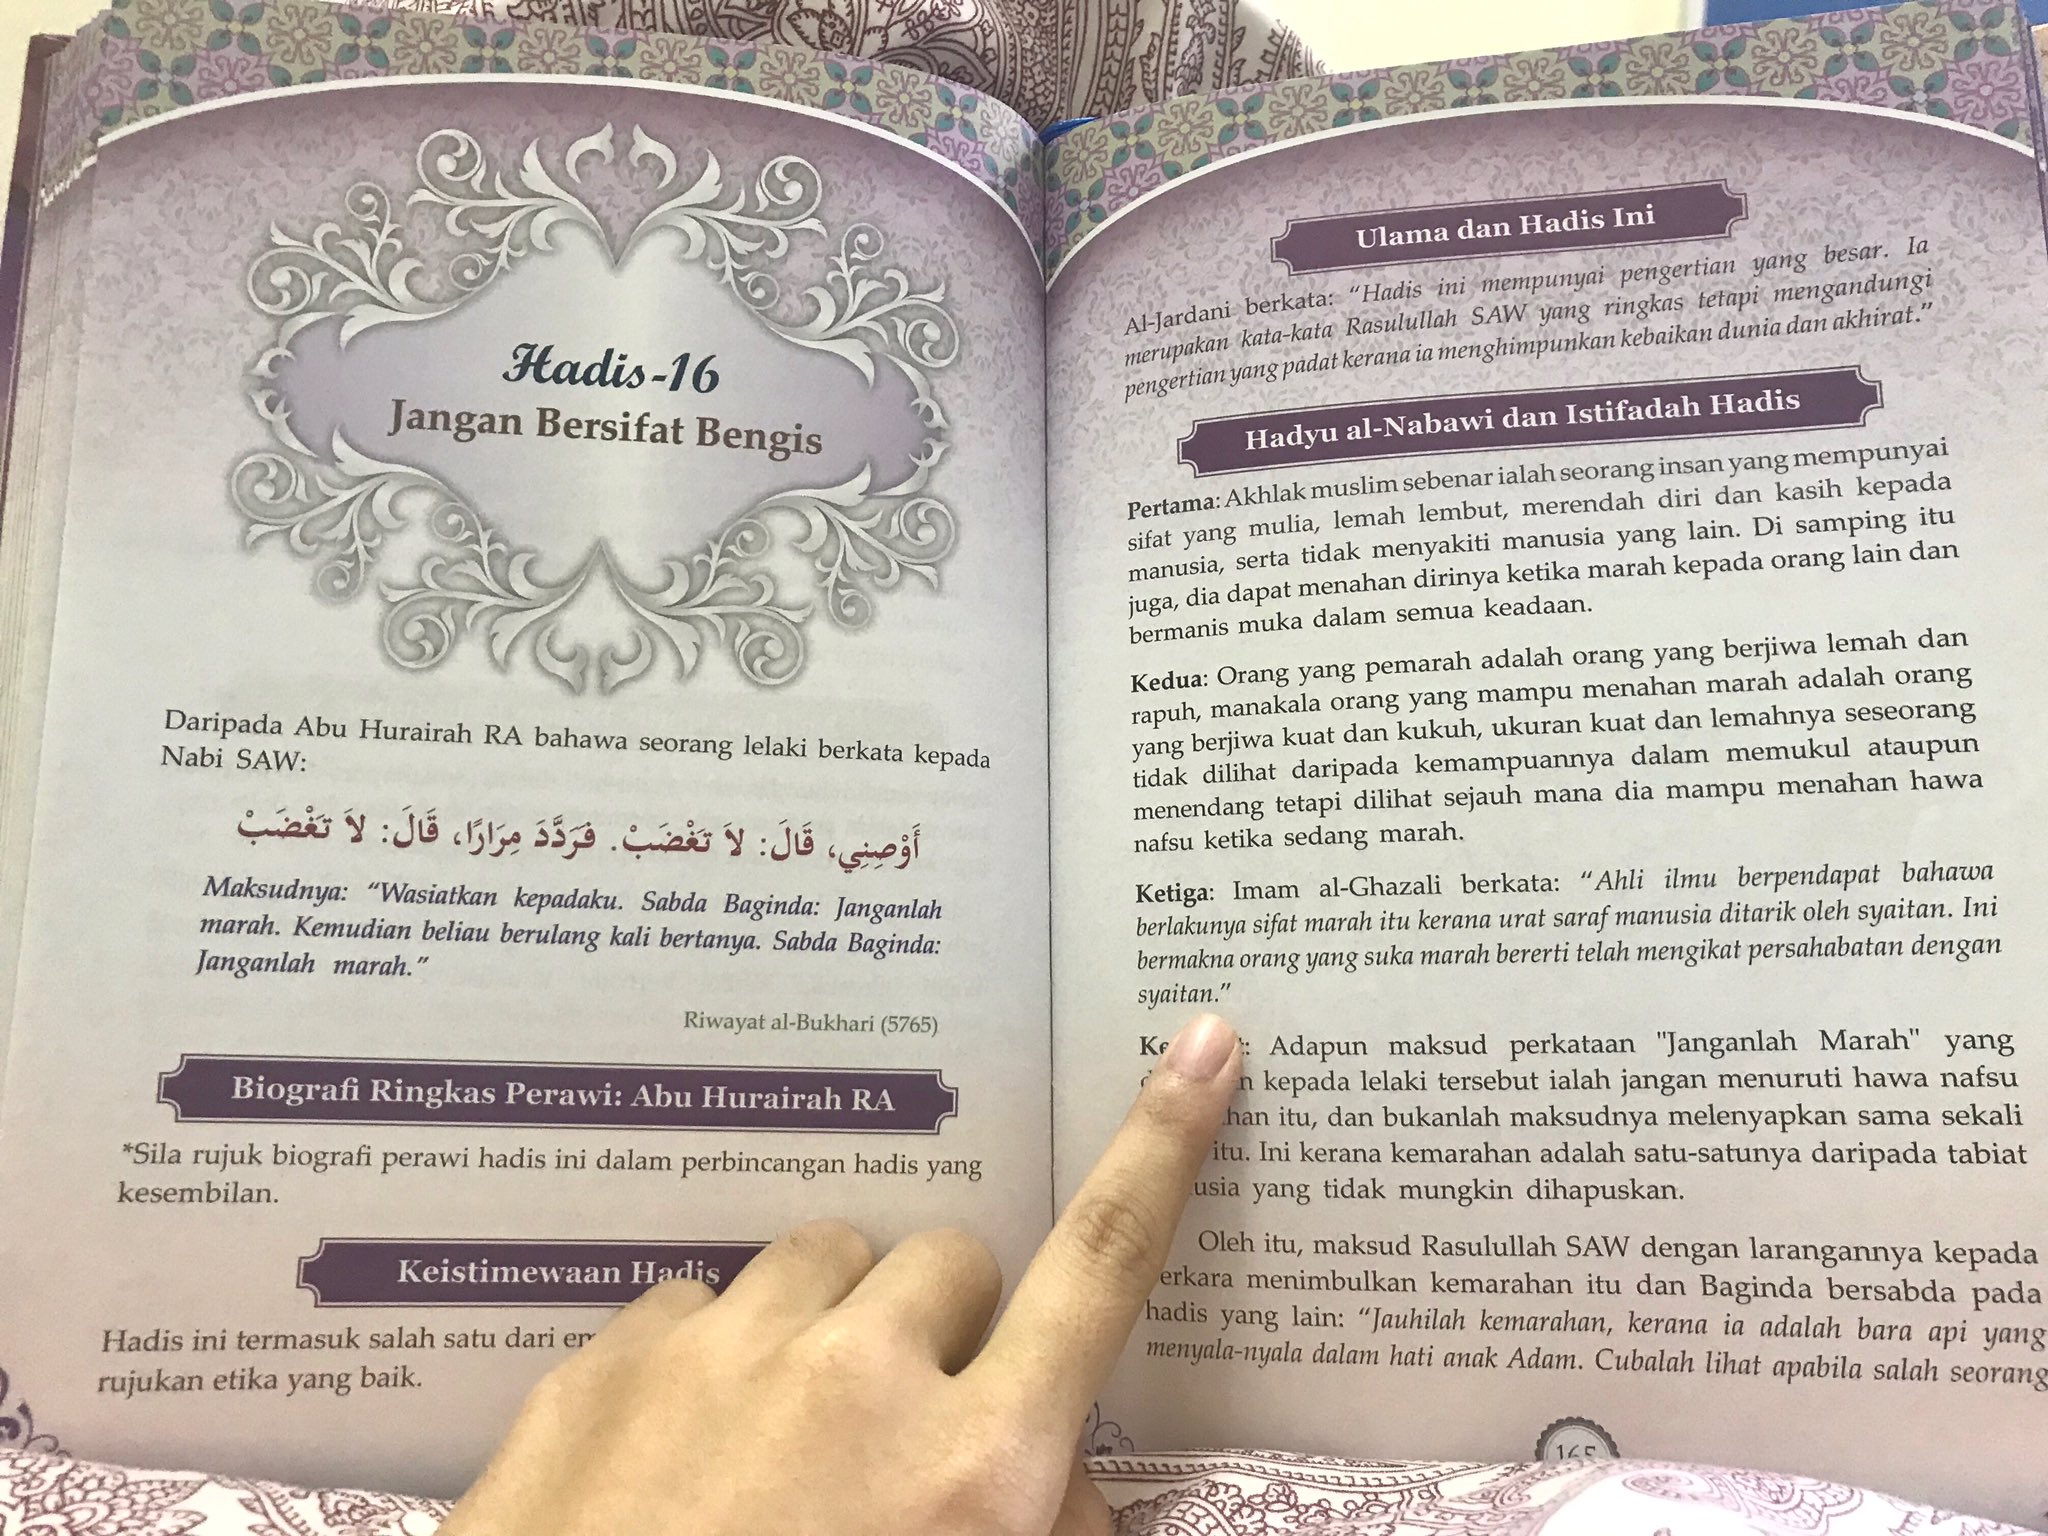 Hadis-16
Jangan Bersifat Bengis
Daripada Abu Hurairah RA bahawa seorang lelaki berkata kepada
Nabi SAW:
أَوْصِنِي، قَالَ: لاَ تَغْضَبْ. فَرَدَّدَ مِرَارًا، قَالَ: لاَ تَغْضَبْ
Maksudnya: “Wasiatkan kepadaku. Sabda Baginda: Janganlah
marah. Kemudian beliau berulang kali bertanya. Sabda Baginda:
Janganlah marah.”
Riwayat al-Bukhari (5765)
Biografi Ringkas Perawi: Abu Hurairah RA
*Sila rujuk biografi perawi hadis ini dalam perbincangan hadis yang
kesembilan.
Keistimewaan Hadis
Hadis ini termasuk salah satu dari
rujukan etika yang baik.
Ulama dan Hadis Ini
Al-Jardani berkata: “Hadis ini mempunyai pengertian yang besar. Ia
merupakan kata-kata Rasulullah SAW yang ringkas tetapi mengandungi
pengertian yang padat kerana ia menghimpunkan kebaikan dunia dan akhirat.”
Hadyu al-Nabawi dan Istifadah Hadis
Pertama: Akhlak muslim sebenar ialah seorang insan yang mempunyai
sifat yang mulia, lemah lembut, merendah diri dan kasih kepada
manusia, serta tidak menyakiti manusia yang lain. Di samping itu
juga, dia dapat menahan dirinya ketika marah kepada orang lain dan
bermanis muka dalam semua keadaan.
Kedua: Orang yang pemarah adalah orang yang berjiwa lemah dan
rapuh, manakala orang yang mampu menahan marah adalah orang
yang berjiwa kuat dan kukuh, ukuran kuat dan lemahnya seseorang
tidak dilihat daripada kemampuannya dalam memukul ataupun
menendang tetapi dilihat sejauh mana dia mampu menahan hawa
nafsu ketika sedang marah.
Ketiga: Imam al-Ghazali berkata: “Ahli ilmu berpendapat bahawa
berlakunya sifat marah itu kerana urat saraf manusia ditarik oleh syaitan. Ini
bermakna orang yang suka marah bererti telah mengikat persahabatan dengan
syaitan.”
Adapun maksud perkataan "Janganlah Marah" yang
kepada lelaki tersebut ialah jangan menuruti hawa nafsu
itu, dan bukanlah maksudnya melenyapkan sama sekali
itu. Ini kerana kemarahan adalah satu-satunya daripada tabiat
yang tidak mungkin dihapuskan.
Oleh itu, maksud Rasulullah SAW dengan larangannya kepada
menimbulkan kemarahan itu dan Baginda bersabda pada
hadis yang lain: “Jauhilah kemarahan, kerana ia adalah bara api yang
menyala-nyala dalam hati anak Adam. Cubalah lihat apabila salah seorang
165